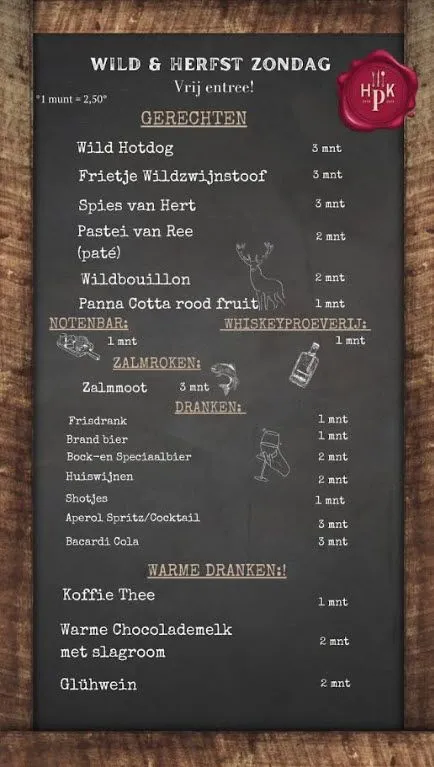 WILD & HERFST ZONDAG
Vrij entree!
*1 munt = 2,50*
H K
P
GERECHTEN
Wild Hotdog 3 mnt
Frietje Wildzwijnstoof 3 mnt
Spies van Hert 3 mnt
Pastei van Ree 2 mnt
(paté)
Wildbouillon 2 mnt
Panna Cotta rood fruit 1 mnt
NOTENBAR: WHISKEYPROEVERIJ:
1 mnt 1 mnt
ZALMROKEN:
Zalmmoot 3 mnt
DRANKEN:
Frisdrank 1 mnt
Brand bier 1 mnt
Bock-en Speciaalbier 2 mnt
Huiswijnen 2 mnt
Shotjes 1 mnt
Aperol Spritz/Cocktail 3 mnt
Bacardi Cola 3 mnt
WARME DRANKEN:!
Koffie Thee 1 mnt
Warme Chocolademelk 2 mnt
met slagroom
Glühwein 2 mnt